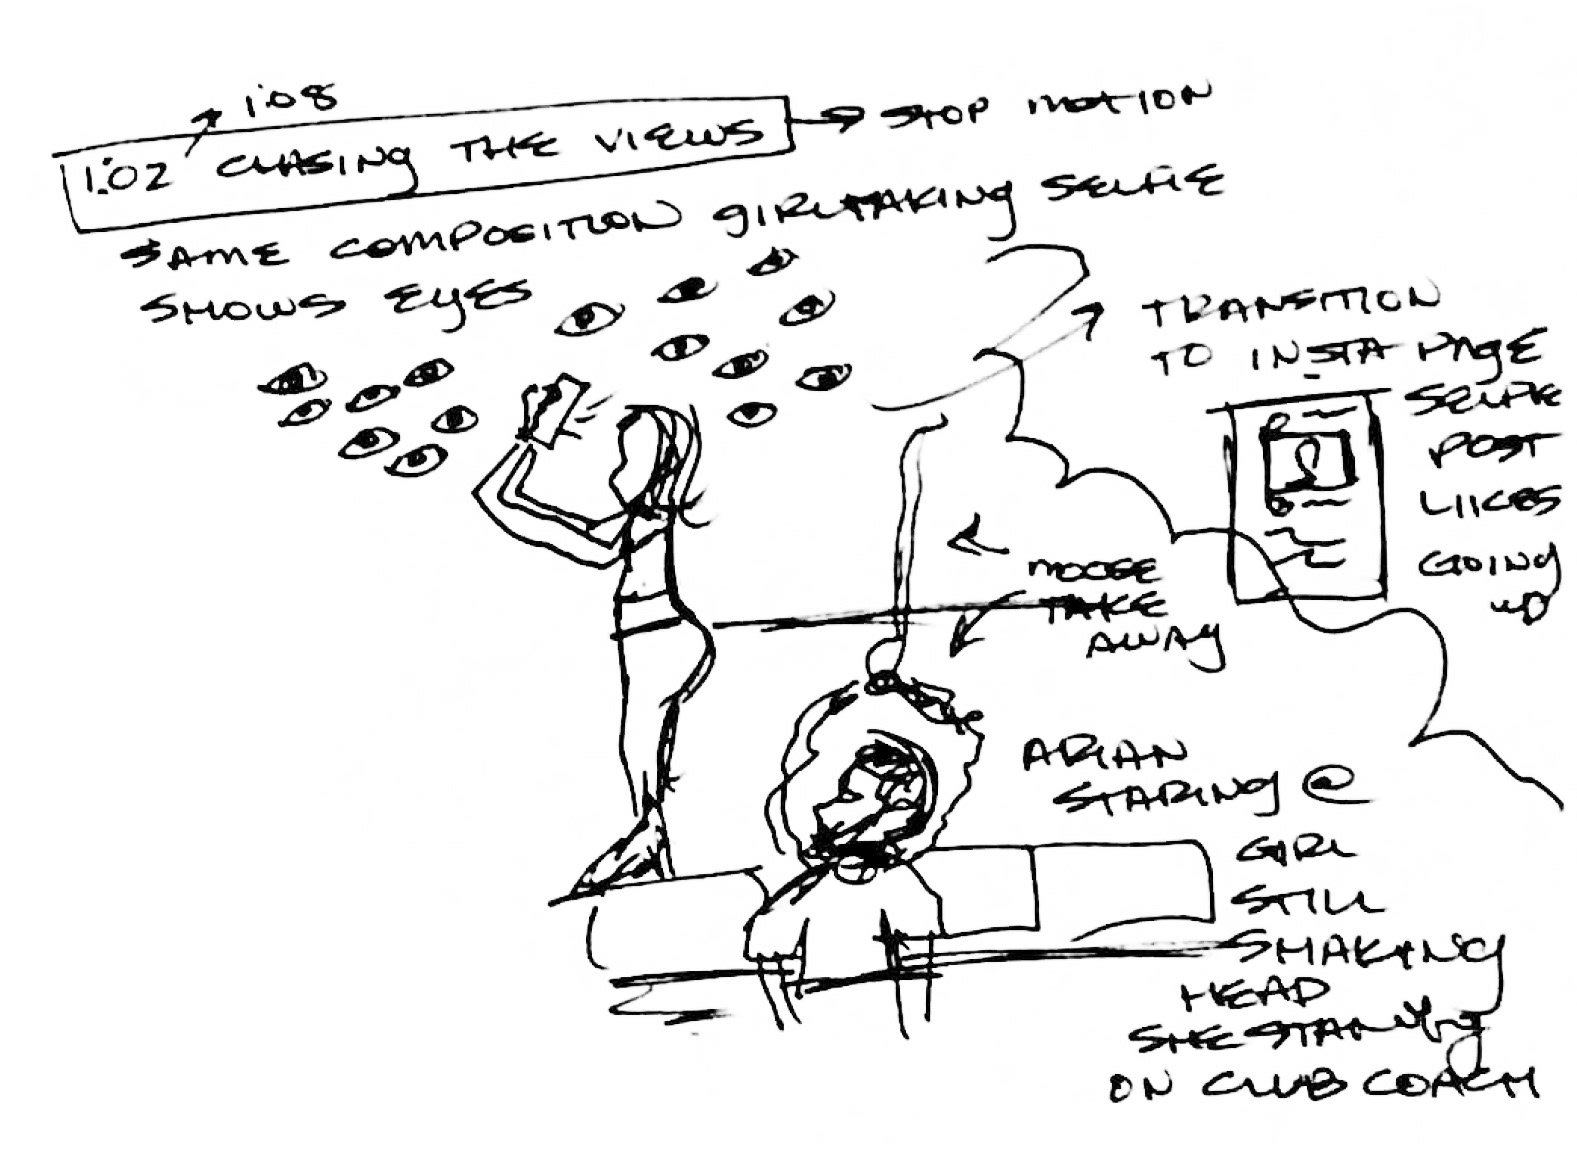 1:08
1:02 CHASING THE VIEWS → STOP MOTION
SAME COMPOSITION GIRL TAKING SELFIE
SHOWS EYES
TRANSITION
TO INSTA PAGE
SELFIE
POST
LIKES
GOING
UP
MOOSE
TAKE
AWAY
ARIAN
STARING @
GIRL
STILL
SHAKING
HEAD
SHE STANDING
ON CLUB COACH